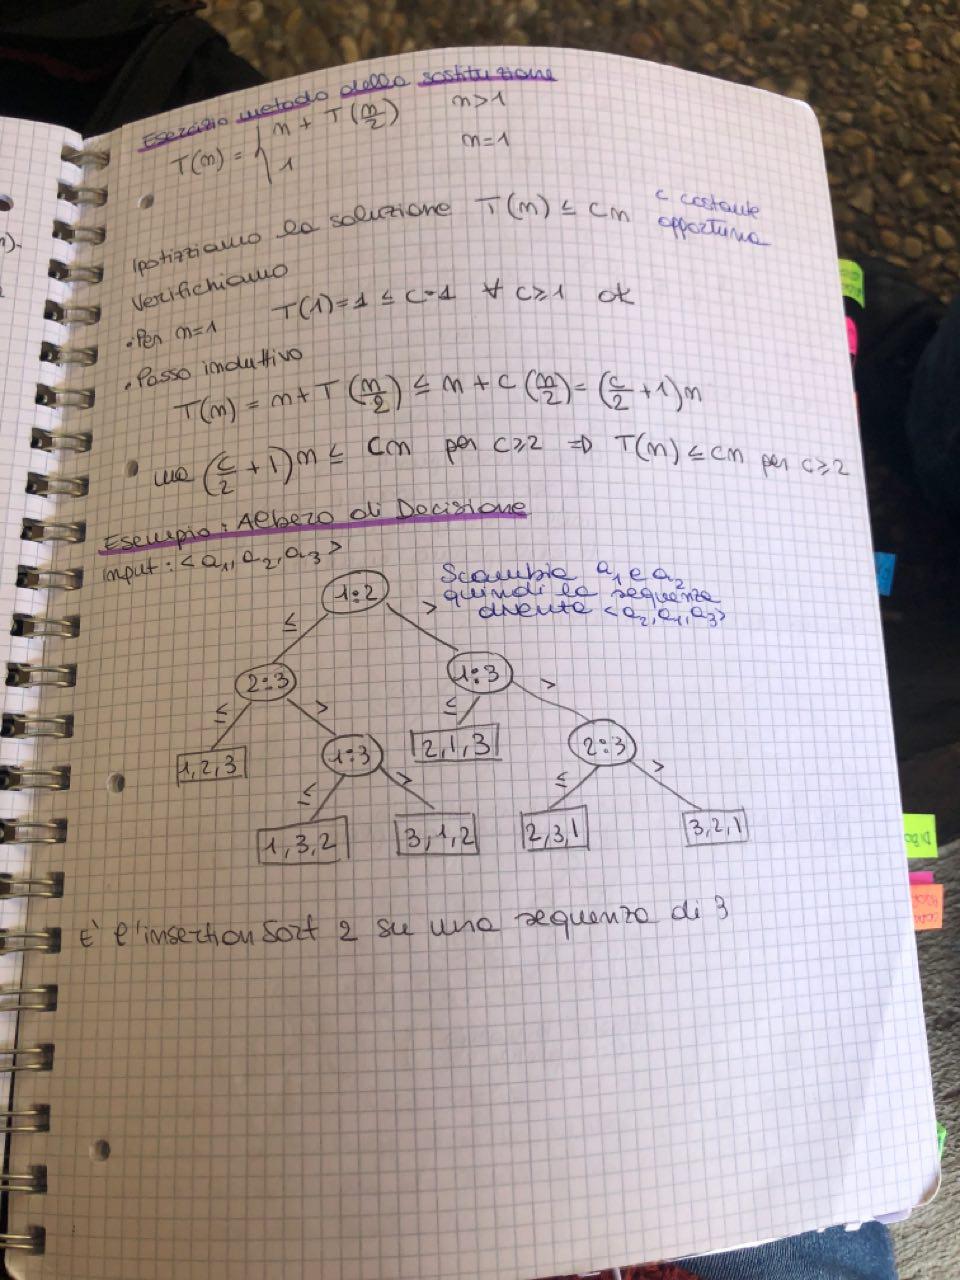 Esercizio metodo della sostituzione
T(n) = { n + T(n/2) n>1
1 n=1
Ipotizziamo la soluzione T(n) ≤ cn c costante opportuna
Verifichiamo
• Per n=1 T(1)=1 ≤ c·1 ∀ c≥1 ok
• Passo induttivo
T(n) = n+T(n/2) ≤ n + c(n/2) = (c/2 + 1)n
ma (c/2 + 1)n ≤ cn per c≥2 ⇒ T(n) ≤ cn per c≥2
Esempio: Albero di Decisione
input: <a1, a2, a3>
Scambia a1 e a2
quindi la sequenza
diventa <a2, a1, a3>
1:2
≤ >
2:3 1:3
≤ > ≤ >
1,2,3 1:3 2,1,3 2:3
≤ > ≤ >
1,3,2 3,1,2 2,3,1 3,2,1
È l'insertion Sort 2 su una sequenza di 3